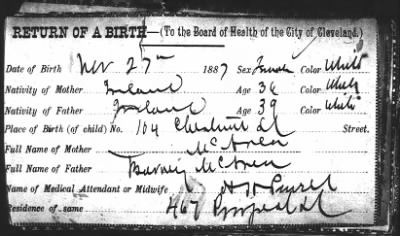 RETURN OF A BIRTH—(To the Board of Health of the City of Cleveland.)
Date of Birth Nov 27th 1887 Sex Female Color White
Nativity of Mother Ireland Age 36 Color White
Nativity of Father Ireland Age 39 Color White
Place of Birth (of child) No. 104 Chestnut St Street.
Full Name of Mother
Full Name of Father
Name of Medical Attendant or Midwife
Residence of same 467 Prospect St